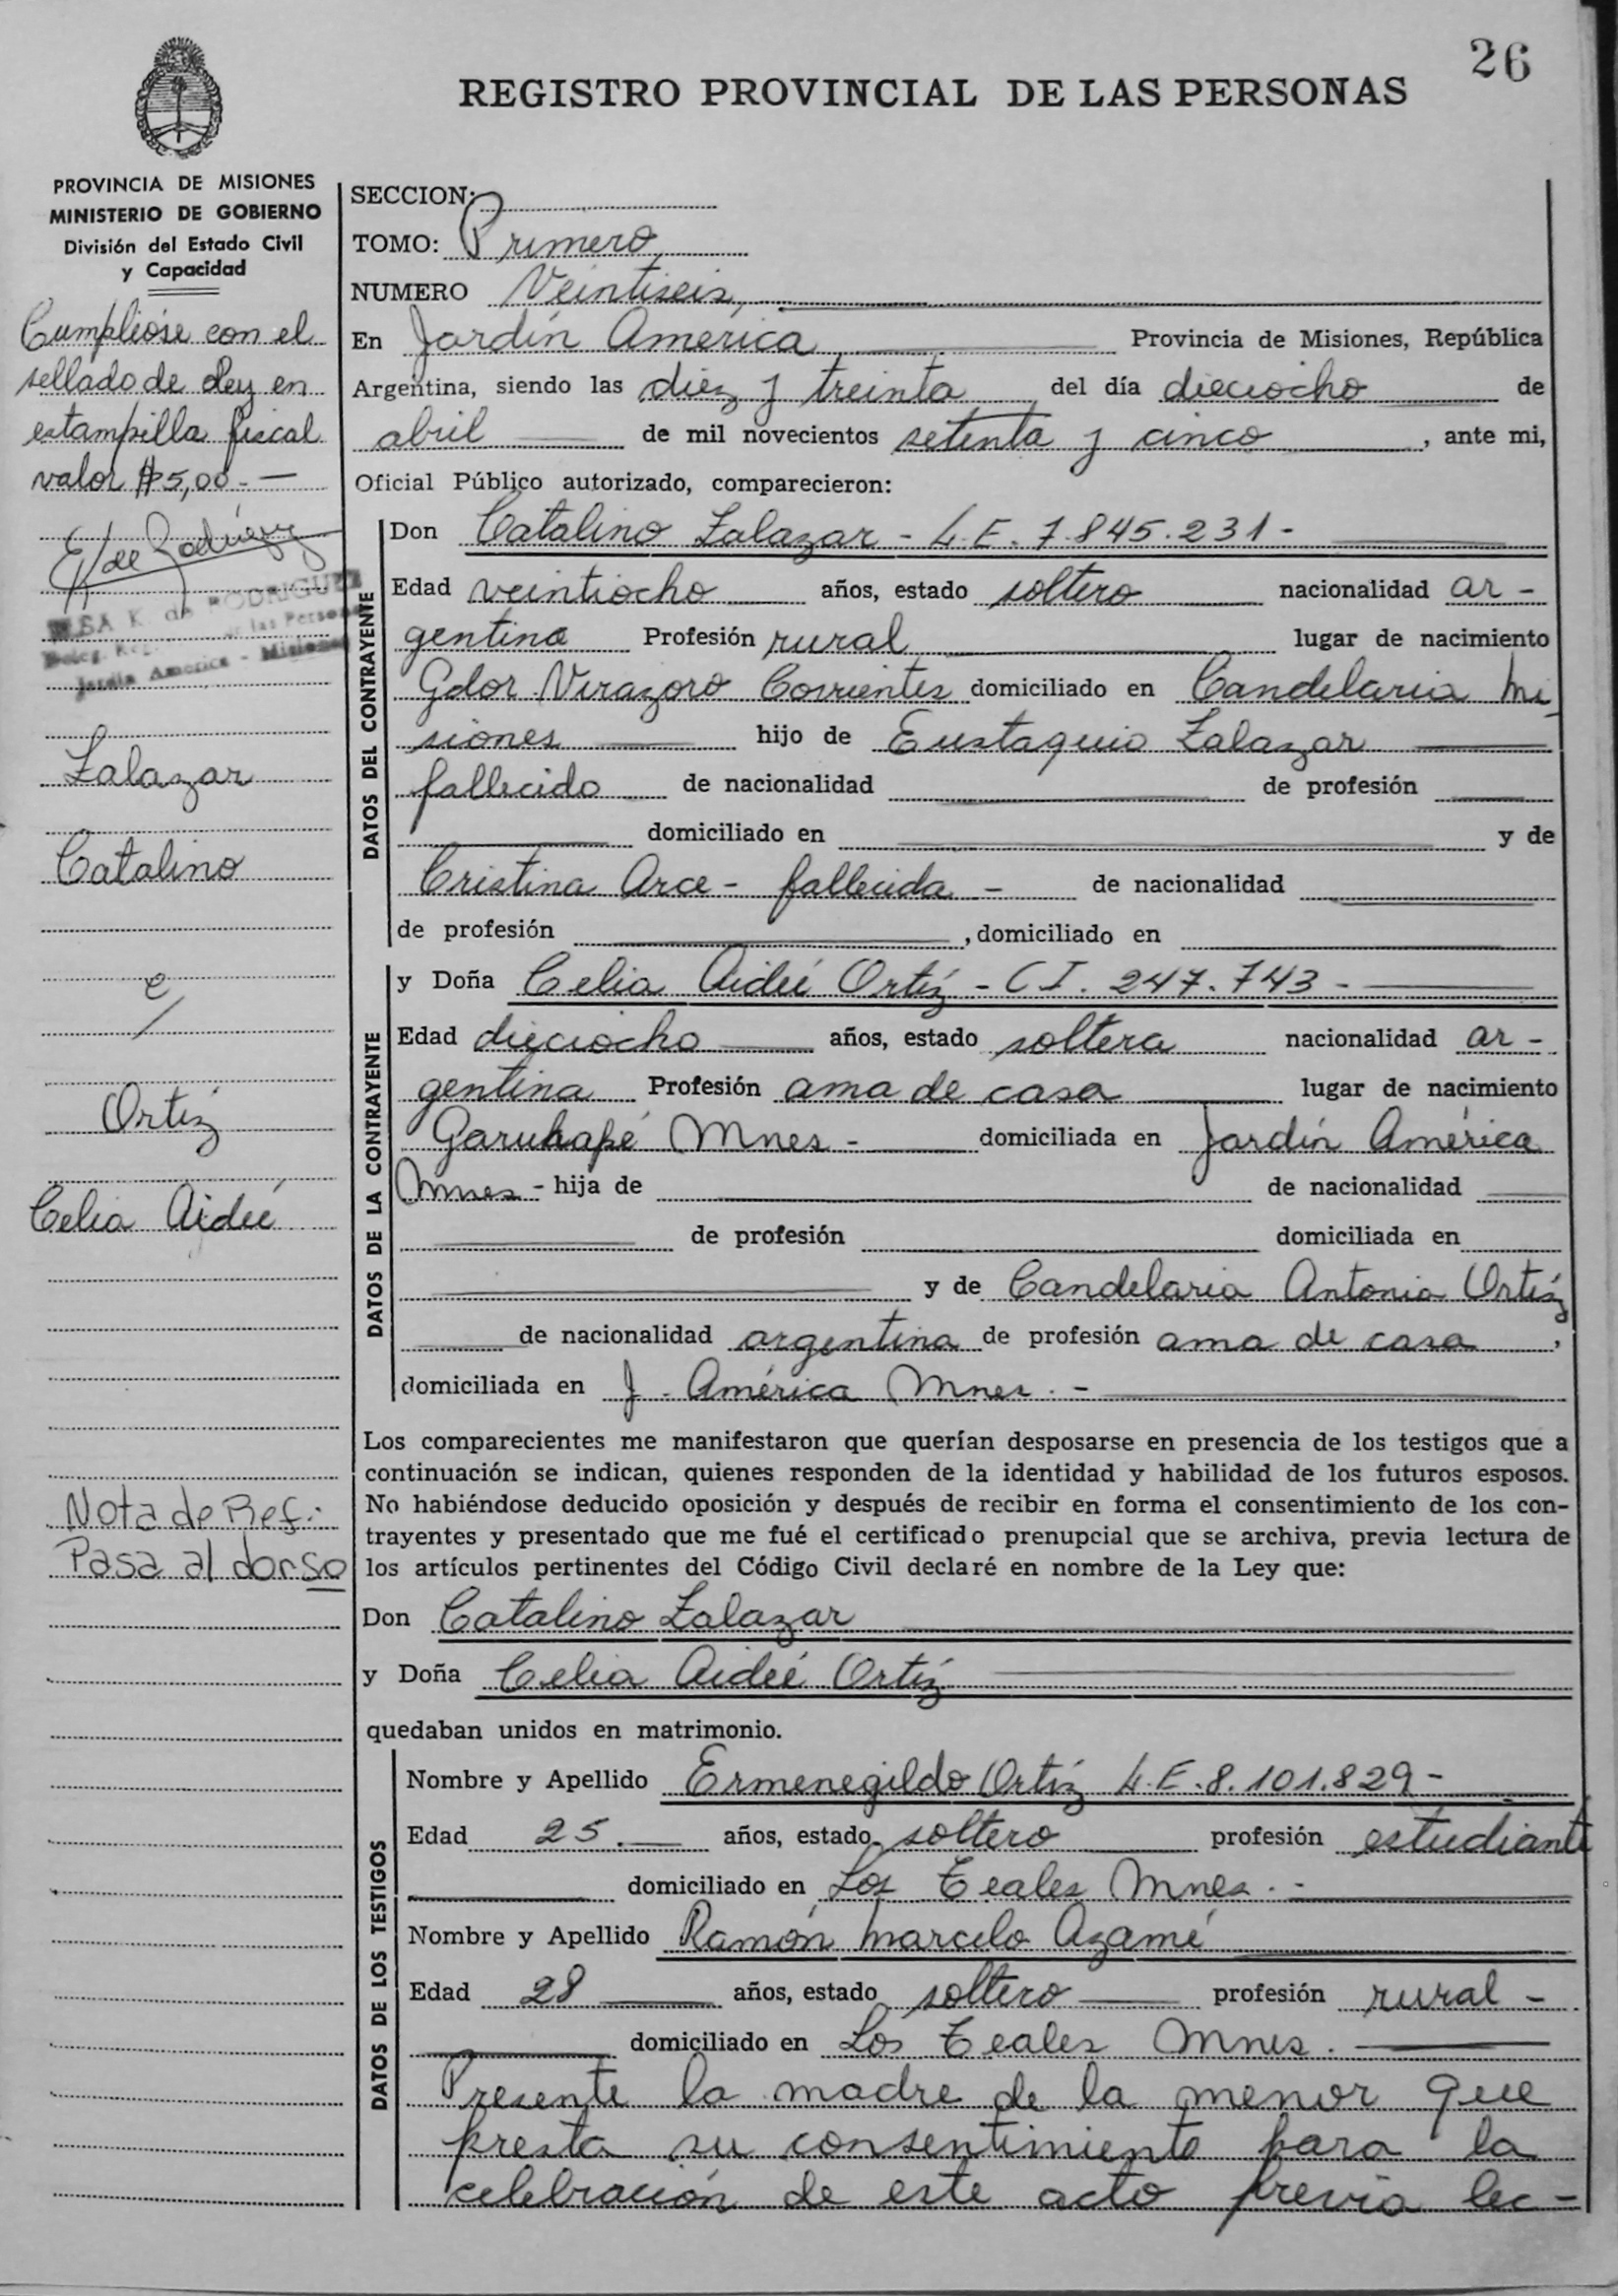 26
REGISTRO PROVINCIAL DE LAS PERSONAS
PROVINCIA DE MISIONES
MINISTERIO DE GOBIERNO
División del Estado Civil
y Capacidad
Cumplióse con el
sellado de Ley en
estampilla fiscal
valor $5,00.-
ELSA K. de RODRIGUEZ
Deleg. Reg. de las Personas
Jardín America - Misiones
Zalazar
Catalino
c/
Ortiz
Celia Aideé
Nota de Ref.:
Pasa al dorso
SECCION:
TOMO: Primero
NUMERO Veintiseis,
En Jardín America Provincia de Misiones, República
Argentina, siendo las diez y treinta del día dieciocho de
abril de mil novecientos setenta y cinco, ante mi,
Oficial Público autorizado, comparecieron:
DATOS DEL CONTRAYENTE
Don Catalino Zalazar - L.E. 7.845.231 -
Edad veintiocho años, estado soltero nacionalidad ar-
gentina Profesión rural lugar de nacimiento
Gdor Virazoro Corrientes domiciliado en Candelaria Mi
siones hijo de Eustaquio Zalazar
fallecido de nacionalidad de profesión
domiciliado en y de
Cristina Arce - fallecida - de nacionalidad
de profesión , domiciliado en
DATOS DE LA CONTRAYENTE
y Doña Celia Aideé Ortíz - C I. 247.743 -
Edad dieciocho años, estado soltera nacionalidad ar-
gentina Profesión ama de casa lugar de nacimiento
Garuhapé Mnes - domiciliada en Jardín América
Mnes - hija de de nacionalidad
de profesión domiciliada en
y de Candelaria Antonia Ortíz
de nacionalidad argentina de profesión ama de casa,
domiciliada en J. América Mnes. -
Los comparecientes me manifestaron que querían desposarse en presencia de los testigos que a
continuación se indican, quienes responden de la identidad y habilidad de los futuros esposos.
No habiéndose deducido oposición y después de recibir en forma el consentimiento de los con-
trayentes y presentado que me fué el certificado prenupcial que se archiva, previa lectura de
los artículos pertinentes del Código Civil declaré en nombre de la Ley que:
Don Catalino Zalazar
y Doña Celia Aideé Ortíz
quedaban unidos en matrimonio.
DATOS DE LOS TESTIGOS
Nombre y Apellido Ermenegildo Ortíz L.E. 8.101.829 -
Edad 25. años, estado soltero profesión estudiante
domiciliado en Los Teales Mnes. -
Nombre y Apellido Ramón Marcelo Azamé
Edad 28 años, estado soltero profesión rural -
domiciliado en Los Teales Mnes.
Presente la madre de la menor que
presta su consentimiento para la
celebración de este acto previa lec-